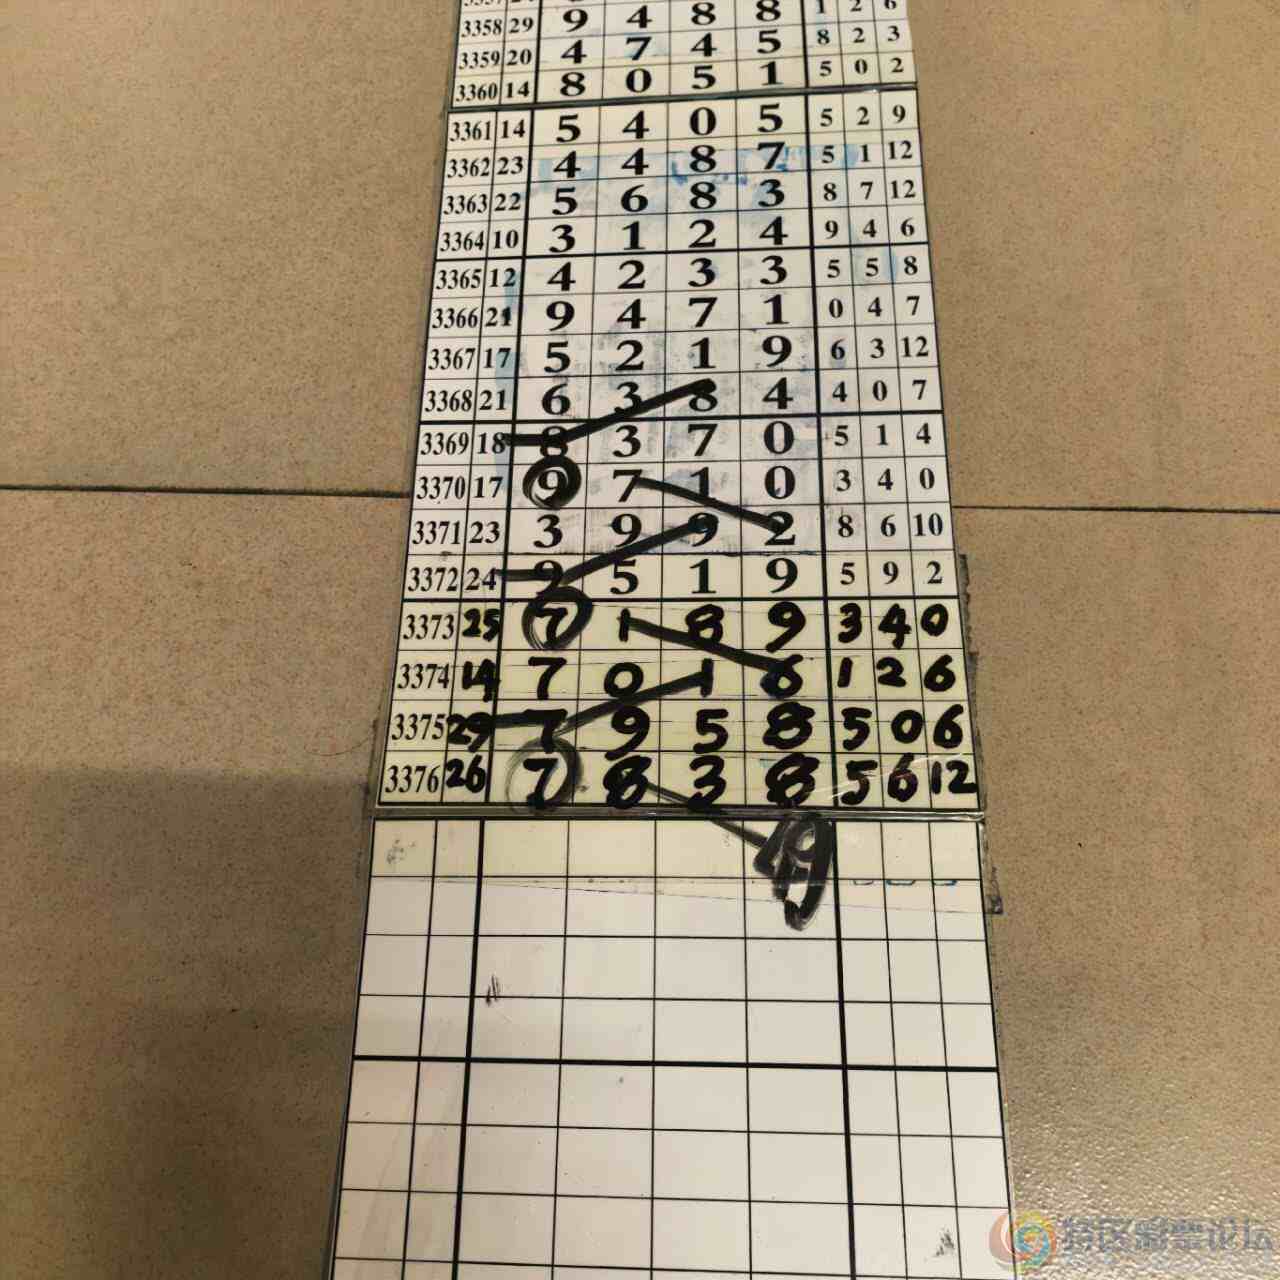 3358 29 9 4 8 8 1 2 6
3359 20 4 7 4 5 8 2 3
3360 14 8 0 5 1 5 0 2
3361 14 5 4 0 5 5 2 9
3362 23 4 4 8 7 5 1 12
3363 22 5 6 8 3 8 7 12
3364 10 3 1 2 4 9 4 6
3365 12 4 2 3 3 5 5 8
3366 21 9 4 7 1 0 4 7
3367 17 5 2 1 9 6 3 12
3368 21 6 3 8 4 4 0 7
3369 18 8 3 7 0 5 1 4
3370 17 9 7 1 0 3 4 0
3371 23 3 9 9 2 8 6 10
3372 24 9 5 1 9 5 9 2
3373 25 7 1 8 9 3 4 0
3374 14 7 0 1 6 1 2 6
3375 29 7 9 5 8 5 0 6
3376 26 7 8 3 8 5 6 12
49
特区彩票论坛